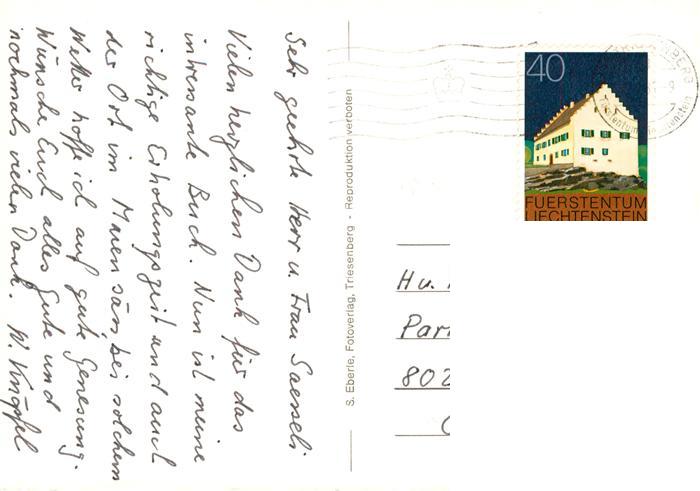 Sehr geehrte Herr u. Frau Saenseli
Vielen herzlichen Dank für das
intressante Buch. Nun ist meine
richtige Erholungszeit und auch
der Ort im Maren säss, bei solchem
Wetter hoffe ich auf gute Genesung.
Wünsche Euch alles Gute und
nochmals vielen Dank. W. Knöpfel
S. Eberle, Fotoverlag, Triesenberg - Reproduktion verboten
40
FUERSTENTUM
LIECHTENSTEIN
H u.
Par
802